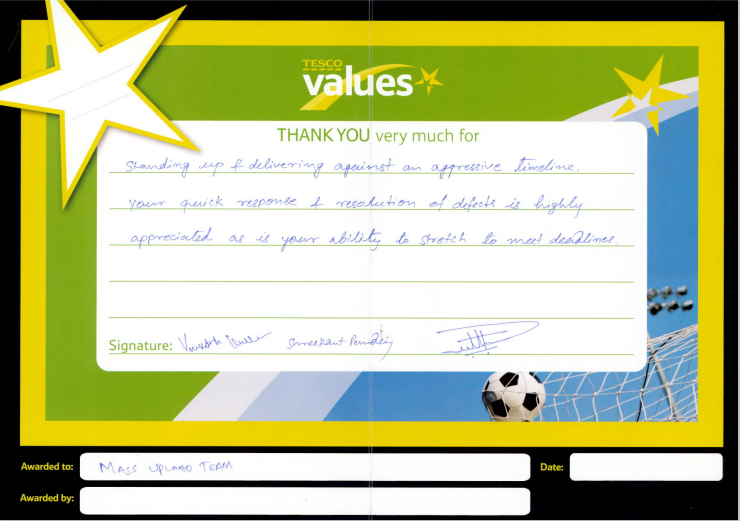 TESCO
values
THANK YOU very much for
Standing up & delivering against an aggressive timeline.
your quick response & resolution of defects is highly
appreciated as is your ability to stretch to meet deadlines.
Signature: Shreekant Pandey
Awarded to: MASS UPLOAD TEAM
Date:
Awarded by: